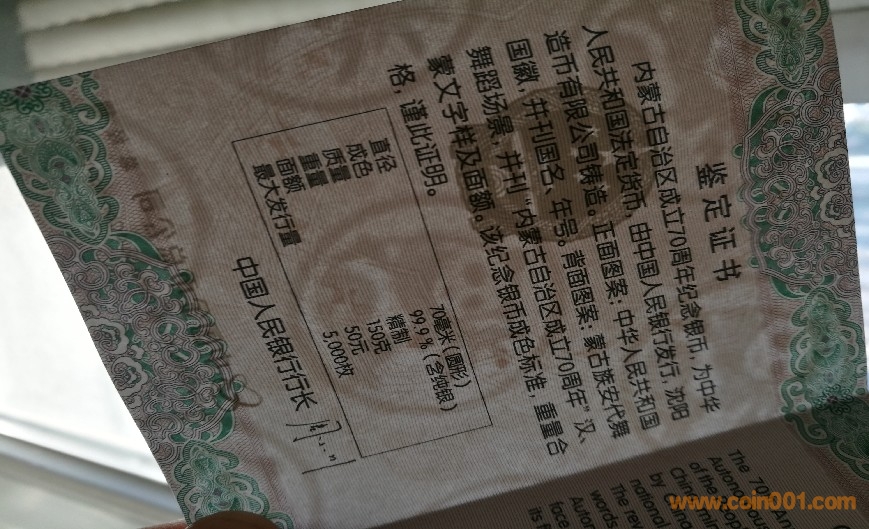 鉴定证书
内蒙古自治区成立70周年纪念银币，为中华
人民共和国法定货币，由中国人民银行发行，沈阳
造币有限公司铸造。正面图案：中华人民共和国
国徽，并刊国名、年号。背面图案：蒙古族安代舞
舞蹈场景，并刊“内蒙古自治区成立70周年”汉、
蒙文字样及面额。该纪念银币成色标准，重量合
格，谨此证明。
直径 70毫米（圆形）
成色 99.9%（含纯银）
质量 精制
重量 150克
面额 50元
最大发行量 5,000枚
中国人民银行行长
The 70
of the
national
by
The rev
words
face
www.coin001.com